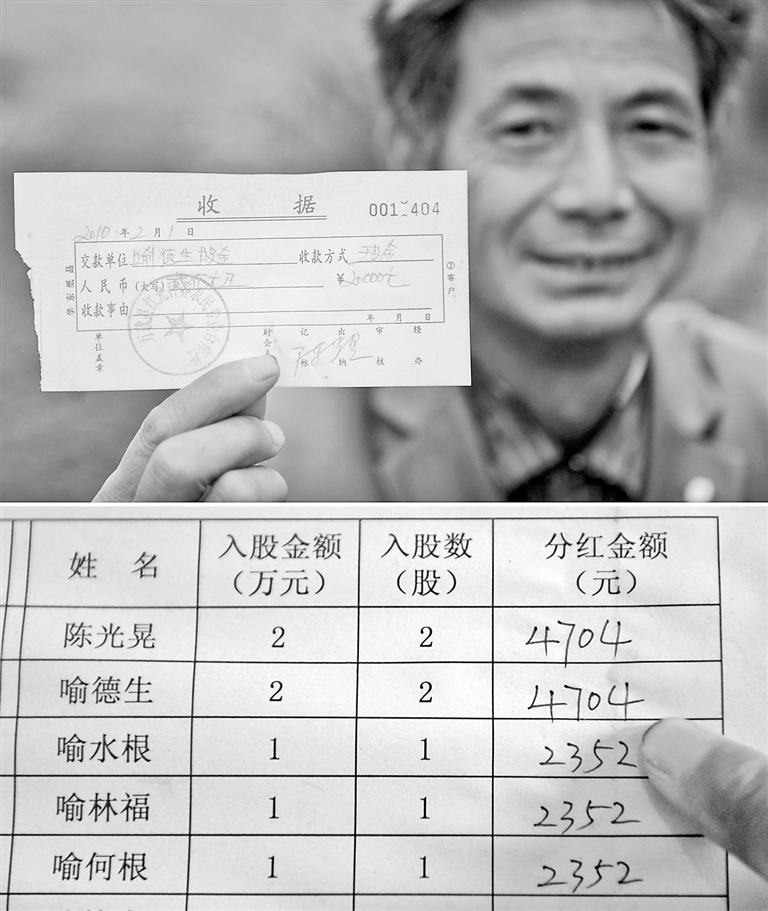 收 据
001 404
2010年2月1日
交款单位 喻德生股金 收款方式 现金
人民币(大写) ¥20000元
收款事由
年 月 日
②客户
单位盖章
财会主
记帐
出纳
审核
经办
姓 名 入股金额(万元) 入股数(股) 分红金额(元)
陈光晃 2 2 4704
喻德生 2 2 4704
喻水根 1 1 2352
喻林福 1 1 2352
喻何根 1 1 2352